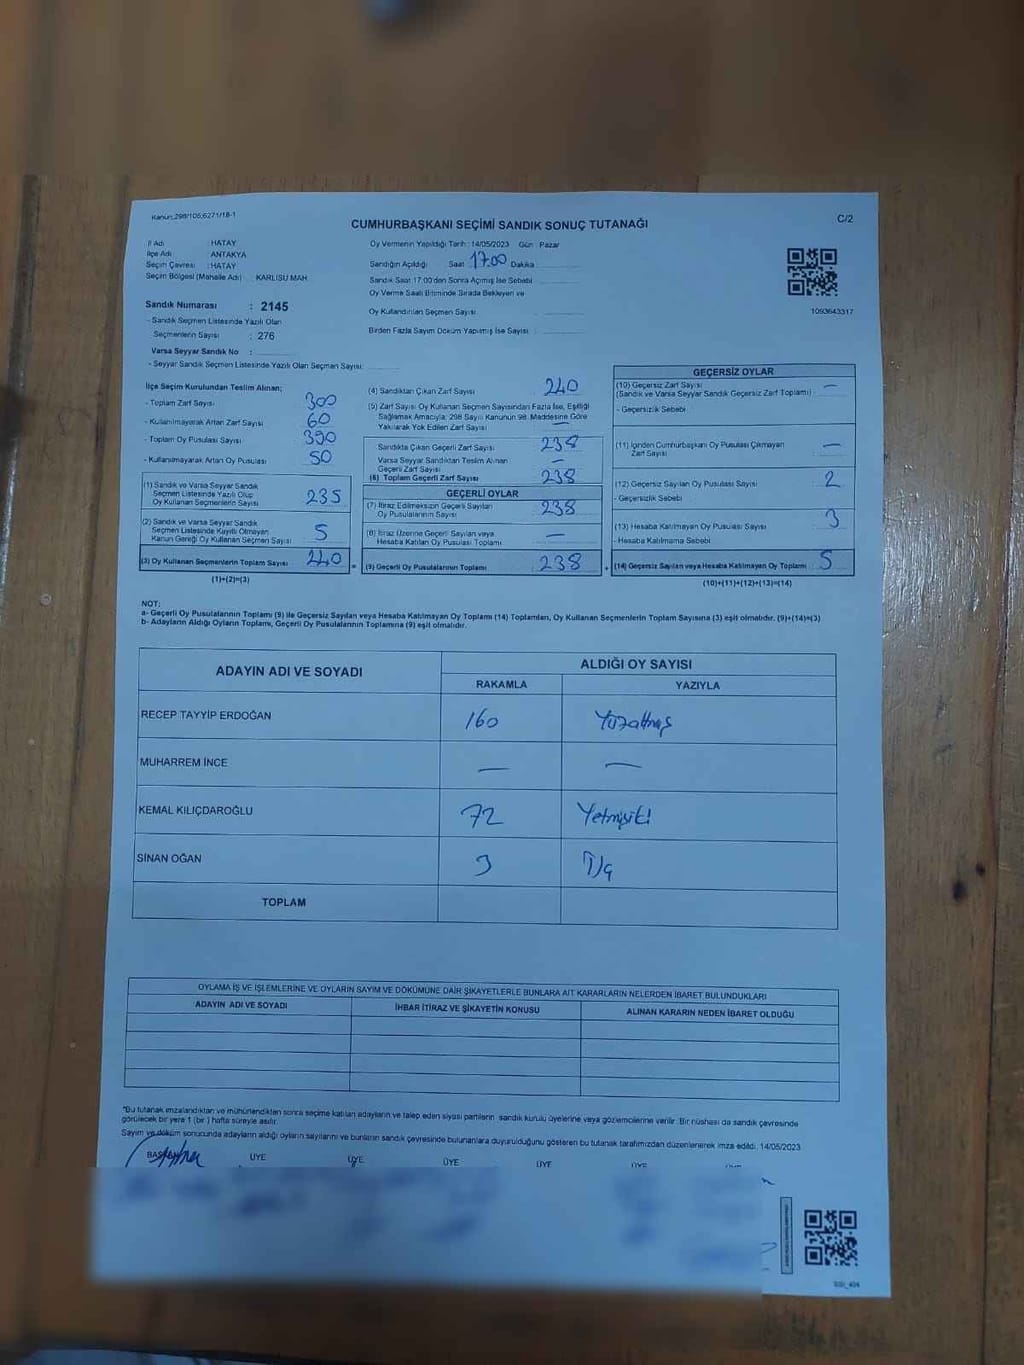 Kanun:298/105;6271/18-1
CUMHURBAŞKANI SEÇİMİ SANDIK SONUÇ TUTANAĞI
C/2
İl Adı HATAY
İlçe Adı ANTAKYA
Seçim Çevresi :HATAY
Seçim Bölgesi (Mahalle Adı) KARLISU MAH.
Oy Vermenin Yapıldığı Tarih :14/05/2023 Gün : Pazar
Sandığın Açıldığı Saat 17.00 Dakika
Sandık Saat 17:00'den Sonra Açılmış İse Sebebi
Oy Verme Saati Bitiminde Sırada Bekleyen ve
Oy Kullandırılan Seçmen Sayısı
Birden Fazla Sayım Döküm Yapılmış İse Sayısı
1093643317
Sandık Numarası : 2145
- Sandık Seçmen Listesinde Yazılı Olan
Seçmenlerin Sayısı : 276
Varsa Seyyar Sandık No :
- Seyyar Sandık Seçmen Listesinde Yazılı Olan Seçmen Sayısı:
İlçe Seçim Kurulundan Teslim Alınan;
- Toplam Zarf Sayısı 300
- Kullanılmayarak Artan Zarf Sayısı 60
- Toplam Oy Pusulası Sayısı
- Kullanılmayarak Artan Oy Pusulası 50
(1) Sandık ve Varsa Seyyar Sandık
Seçmen Listesinde Yazılı Olup
Oy Kullanan Seçmenlerin Sayısı 235
(2) Sandık ve Varsa Seyyar Sandık
Seçmen Listesinde Kayıtlı Olmayan
Kanun Gereği Oy Kullanan Seçmen Sayısı 5
(3) Oy Kullanan Seçmenlerin Toplam Sayısı 240
(1)+(2)=(3)
(4) Sandıktan Çıkan Zarf Sayısı 240
(5) Zarf Sayısı Oy Kullanan Seçmen Sayısından Fazla İse, Eşitliği
Sağlamak Amacıyla; 298 Sayılı Kanunun 98. Maddesine Göre
Yakılarak Yok Edilen Zarf Sayısı —
Sandıkta Çıkan Geçerli Zarf Sayısı 238
Varsa Seyyar Sandıktan Teslim Alınan
Geçerli Zarf Sayısı —
(6) Toplam Geçerli Zarf Sayısı 238
GEÇERLİ OYLAR
(7) İtiraz Edilmeksizin Geçerli Sayılan
Oy Pusulalarının Sayısı 238
(8) İtiraz Üzerine Geçerli Sayılan veya
Hesaba Katılan Oy Pusulası Toplamı —
= (9) Geçerli Oy Pusulalarının Toplamı 238
GEÇERSİZ OYLAR
(10) Geçersiz Zarf Sayısı —
(Sandık ve Varsa Seyyar Sandık Geçersiz Zarf Toplamı) :
- Geçersizlik Sebebi
(11) İçinden Cumhurbaşkanı Oy Pusulası Çıkmayan
Zarf Sayısı —
(12) Geçersiz Sayılan Oy Pusulası Sayısı 2
- Geçersizlik Sebebi
(13) Hesaba Katılmayan Oy Pusulası Sayısı 3
- Hesaba Katılmama Sebebi
+ (14) Geçersiz Sayılan veya Hesaba Katılmayan Oy Toplamı 5
(10)+(11)+(12)+(13)=(14)
NOT:
a- Geçerli Oy Pusulalarının Toplamı (9) ile Geçersiz Sayılan veya Hesaba Katılmayan Oy Toplamı (14) Toplamları, Oy Kullanan Seçmenlerin Toplam Sayısına (3) eşit olmalıdır. (9)+(14)=(3)
b- Adayların Aldığı Oyların Toplamı, Geçerli Oy Pusulalarının Toplamına (9) eşit olmalıdır.
ADAYIN ADI VE SOYADI
ALDIĞI OY SAYISI
RAKAMLA YAZIYLA
RECEP TAYYİP ERDOĞAN 160 Yüzaltmış
MUHARREM İNCE — —
KEMAL KILIÇDAROĞLU 72 Yetmişiki
SİNAN OĞAN 3 Üç
TOPLAM
OYLAMA İŞ VE İŞLEMLERİNE VE OYLARIN SAYIM VE DÖKÜMÜNE DAİR ŞİKAYETLERLE BUNLARA AİT KARARLARIN NELERDEN İBARET BULUNDUKLARI
ADAYIN ADI VE SOYADI İHBAR İTİRAZ VE ŞİKAYETİN KONUSU ALINAN KARARIN NEDEN İBARET OLDUĞU
*Bu tutanak imzalandıktan ve mühürlendikten sonra seçime katılan adayların ve talep eden siyasi partilerin sandık kurulu üyelerine veya gözlemcilerine verilir. Bir nüshası da sandık çevresinde
görülecek bir yere 1 (bir ) hafta süreyle asılır.
Sayım ve döküm sonucunda adayların aldığı oyların sayılarını ve bunların sandık çevresinde bulunanlara duyurulduğunu gösteren bu tutanak tarafımızdan düzenlenerek imza edildi. 14/05/2023
BAŞKAN ÜYE ÜYE ÜYE ÜYE ÜYE